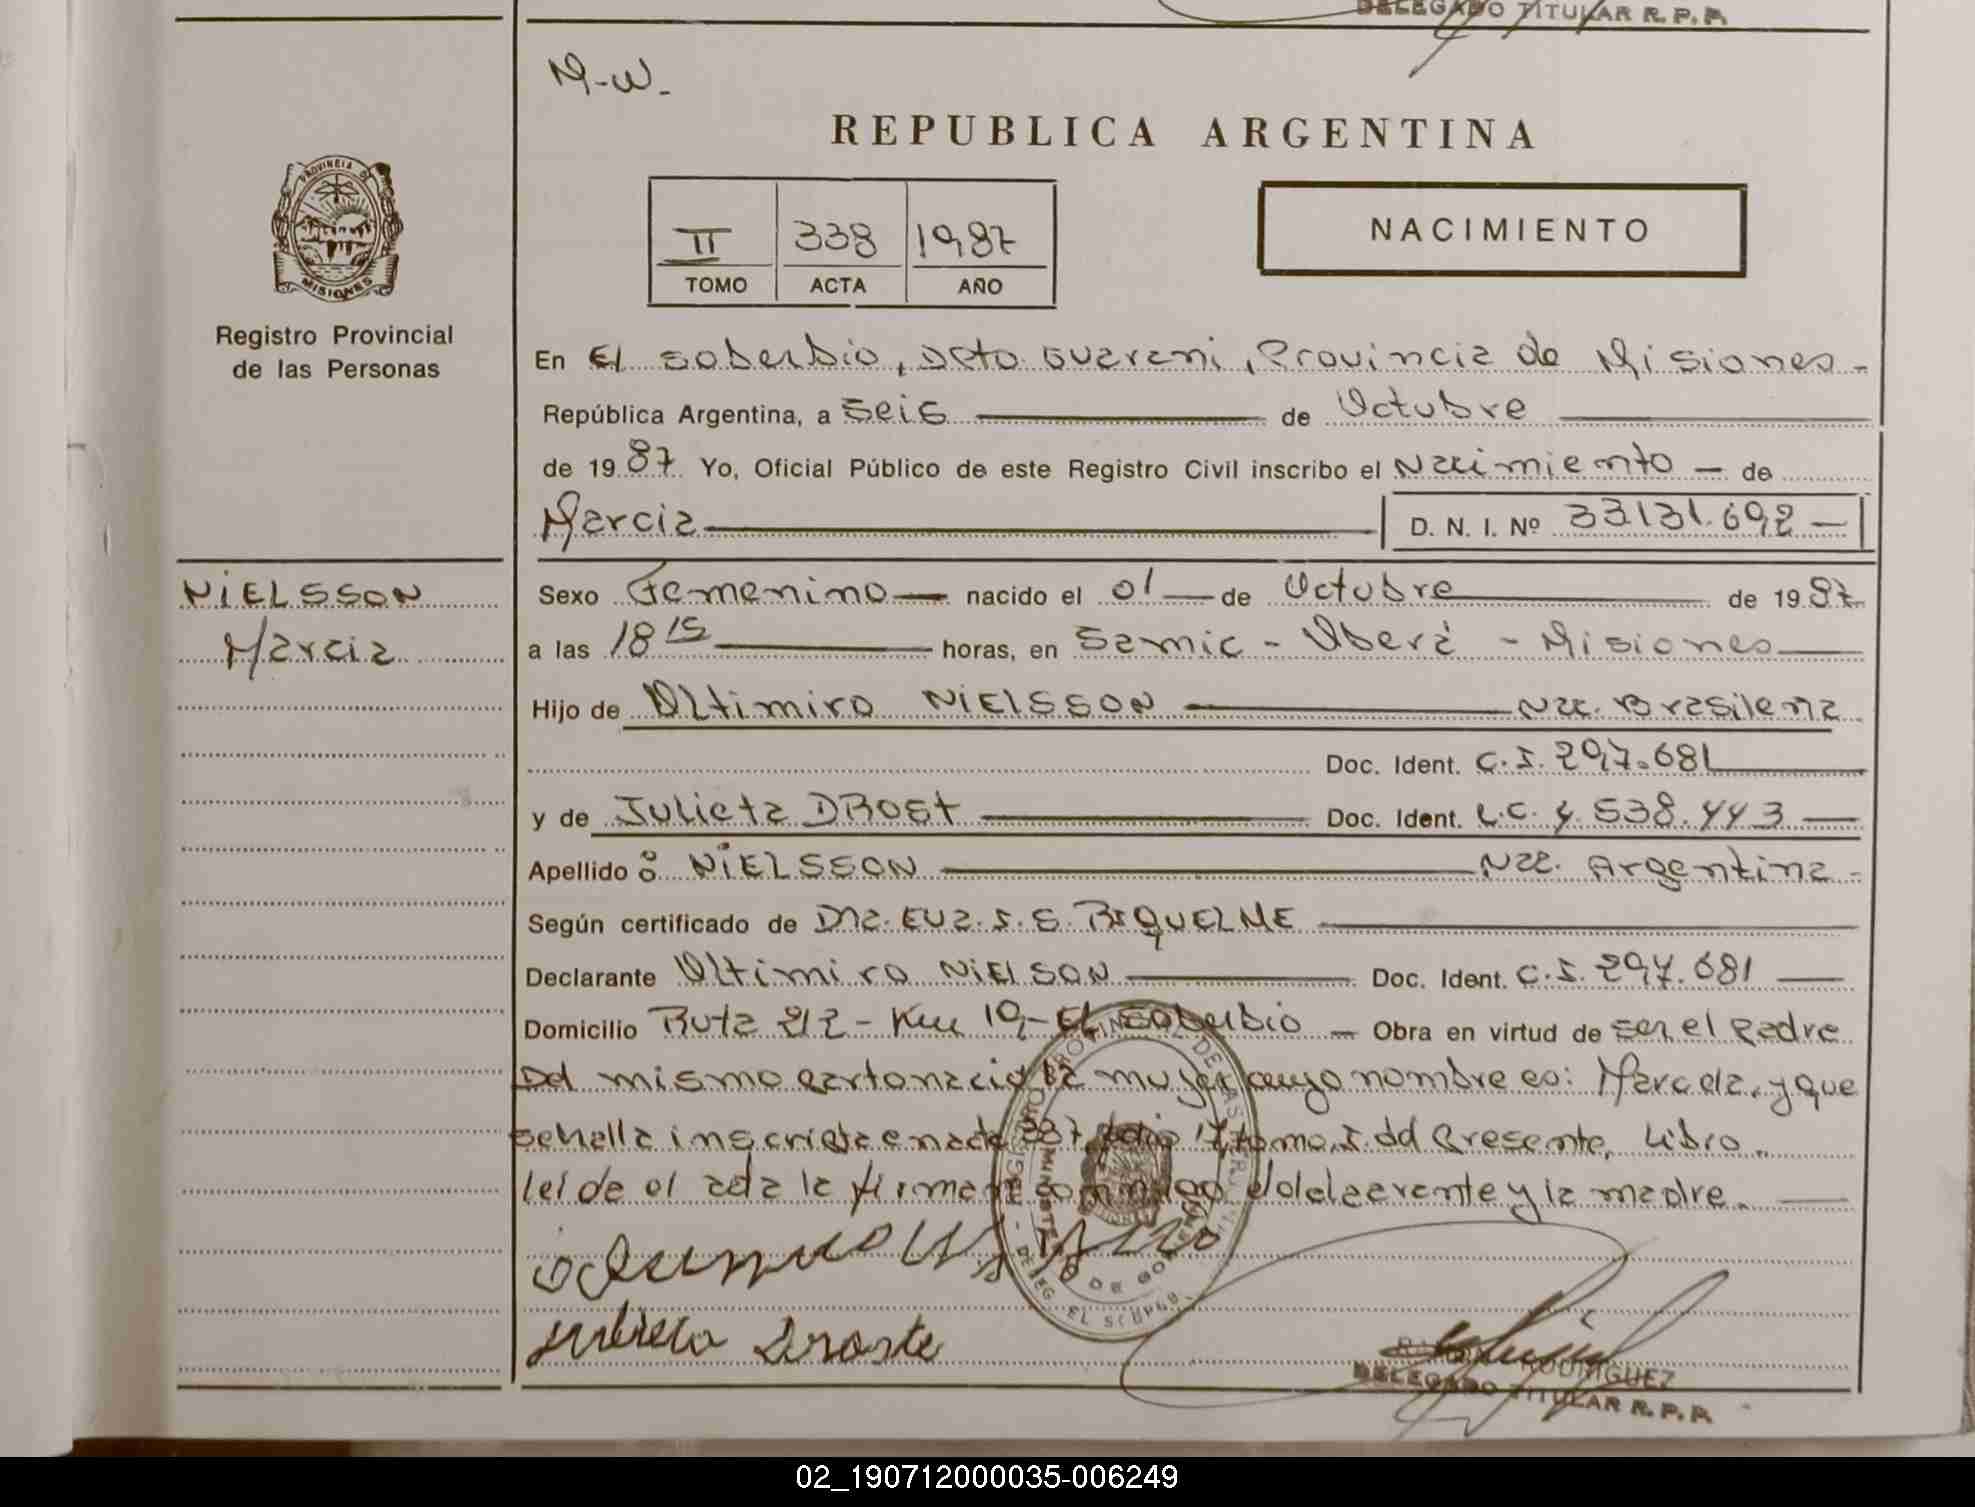 DELEGADO TITULAR R.P.P.
M-W-
REPUBLICA ARGENTINA
PROVINCIA DE
MISIONES
Registro Provincial
de las Personas
II 338 1987
TOMO ACTA AÑO
NACIMIENTO
En El Soberbio, Dpto Guarani, Provincia de Misiones-
República Argentina, a Seis de Octubre
de 1987 Yo, Oficial Público de este Registro Civil inscribo el Nacimiento - de
Marcia D. N. I. Nº 33.131.692 -
NiELSSON
Marcia
Sexo Femenino nacido el 01 de Octubre de 1987
a las 18 15 horas, en Samic - Oberá - Misiones
Hijo de Oltimiro NiElSSON Nac. Brasilena
Doc. Ident. C.I. 297.681
y de Julieta DROSt Doc. Ident. L.C. 4.538.443
Apellido : NiELSSON Nac. Argentina -
Según certificado de Dra. Eva. S. S. RiQUELME
Declarante Oltimiro NiElSON Doc. Ident. C.I. 297.681
Domicilio Ruta 212 - Km 10 - El Soberbio - Obra en virtud de ser el Padre
Del mismo parto nacio la mujer cuyo nombre es: Marcela, y que
se halla inscripta en acta 337, folio 17 tomo, I. del Presente, Libro.
leida el acta la firman conmigo el declarente y la madre.
Julieta Droste
MINISTERIO DE GOBIERNO
DELEG. EL
RODRIGUEZ
DELEGADO TITULAR R.P.P.
02_190712000035-006249